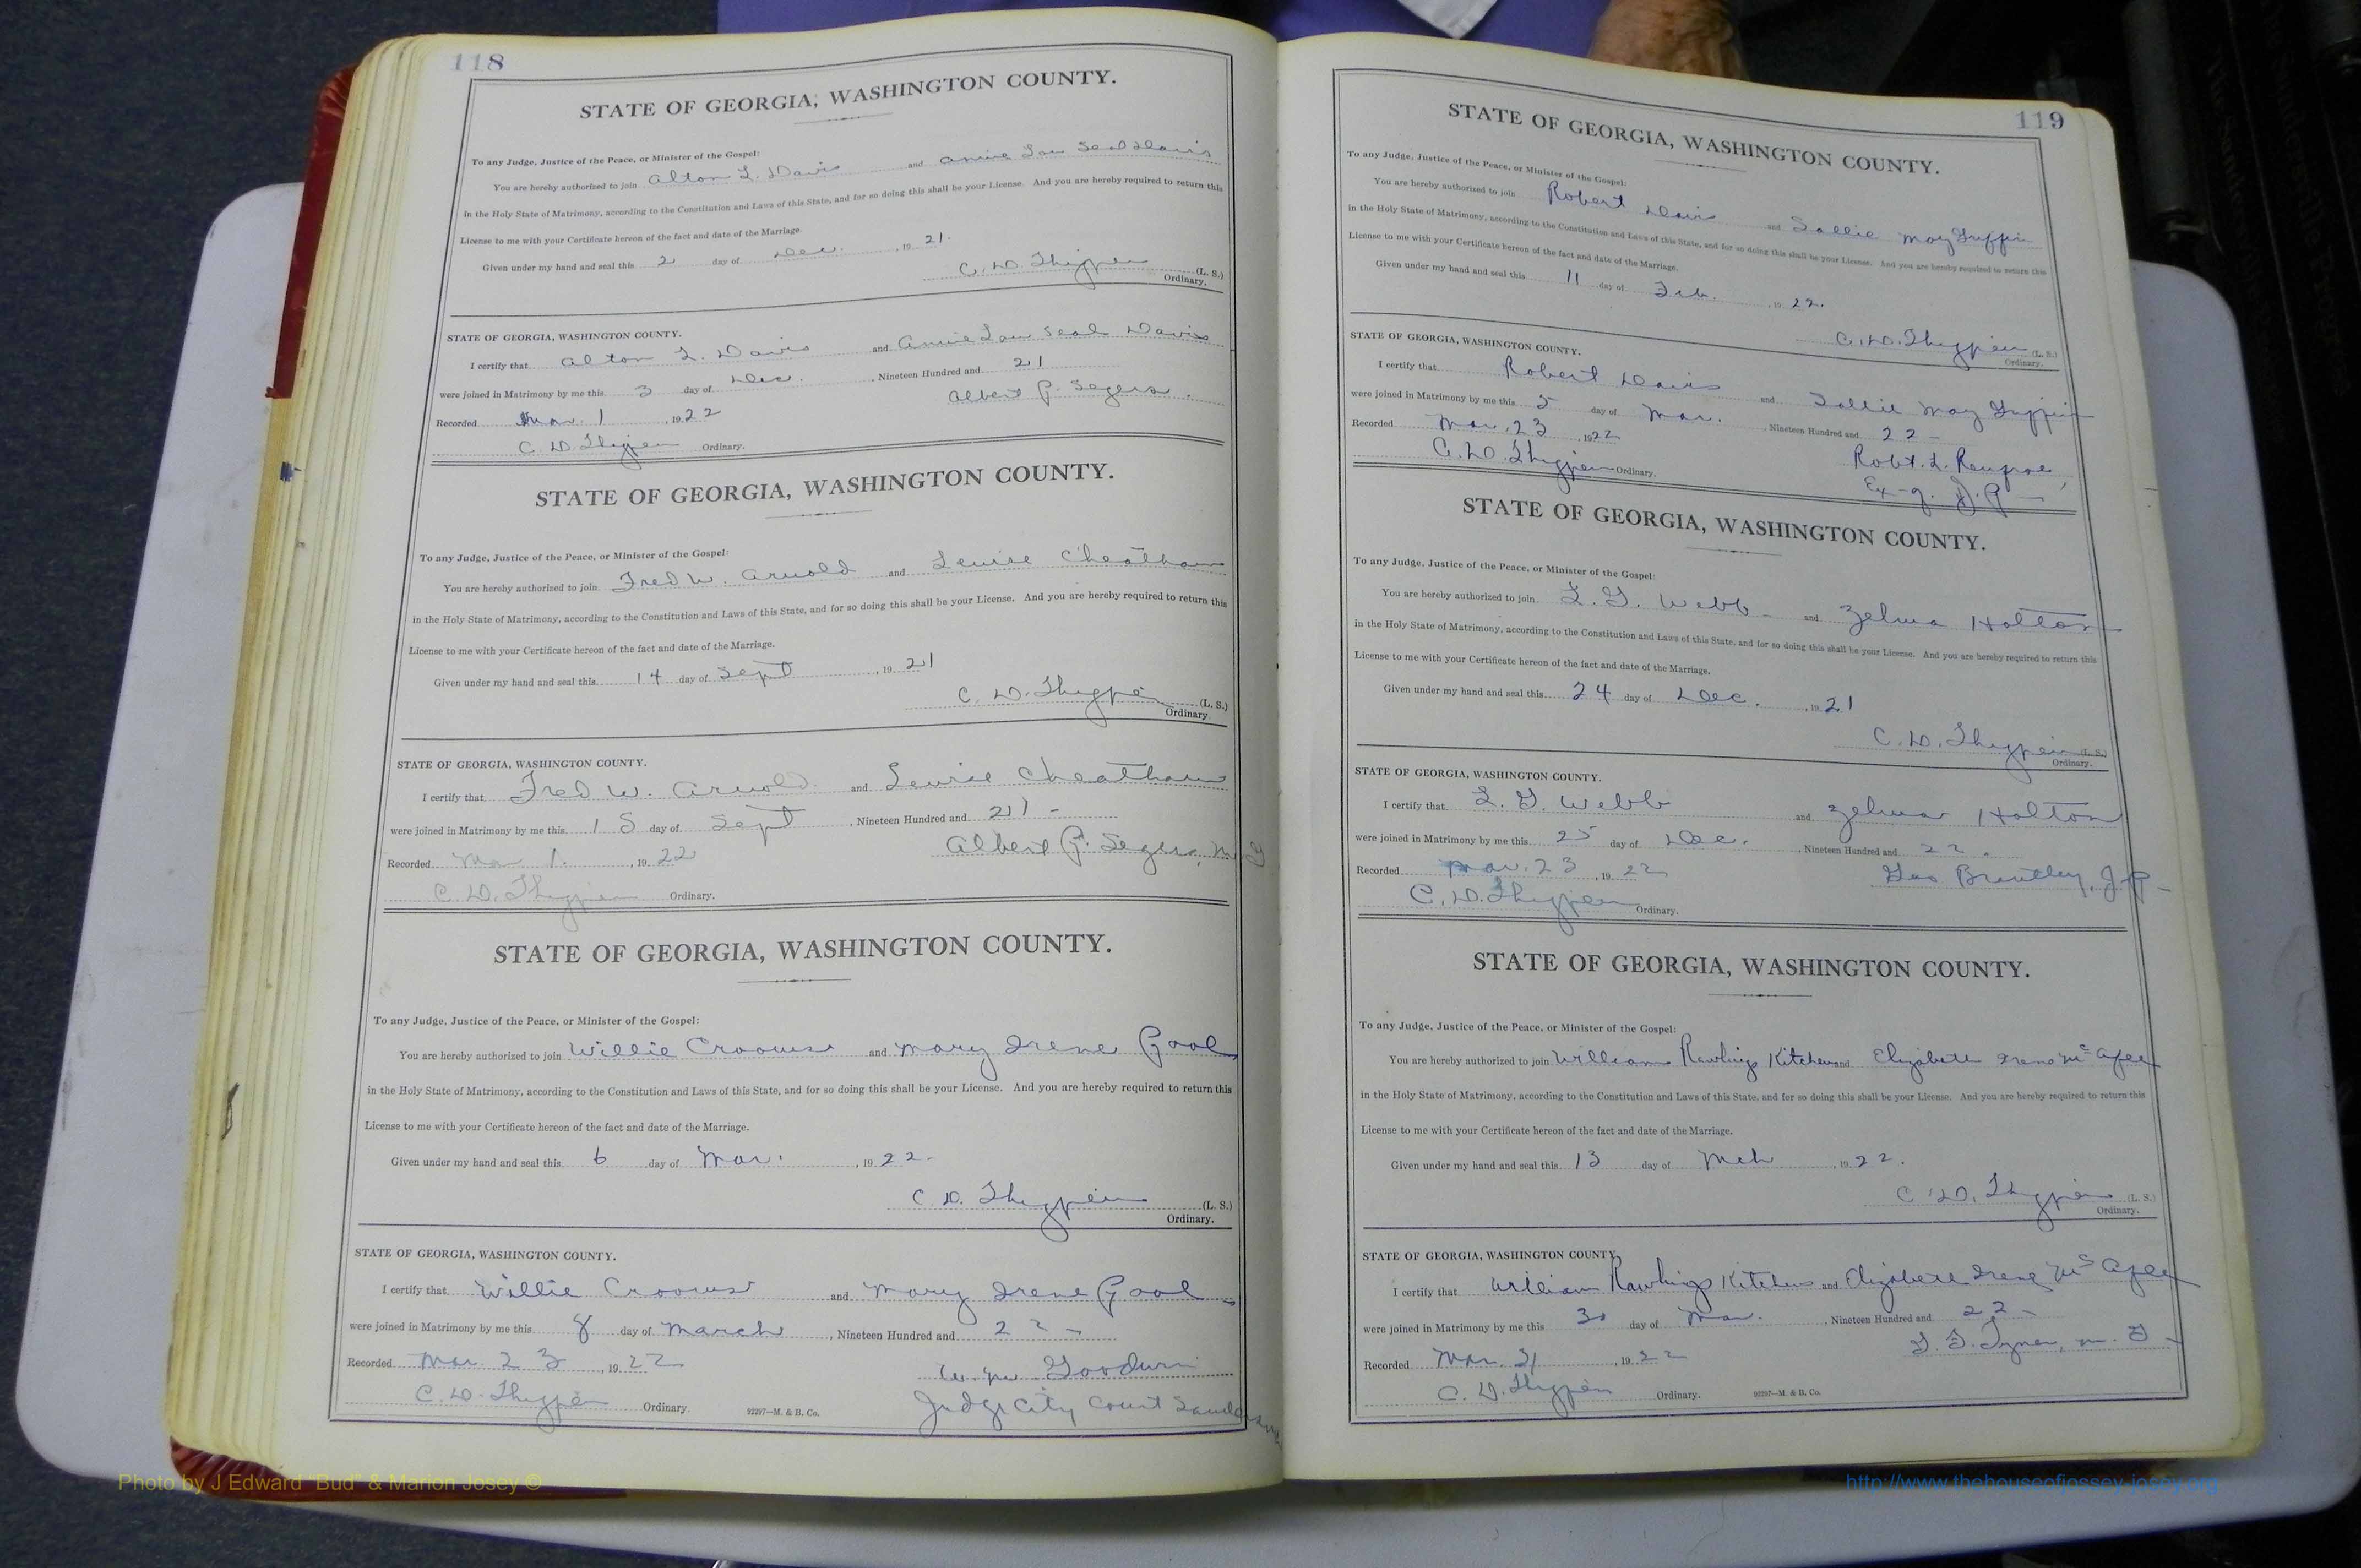 118
STATE OF GEORGIA, WASHINGTON COUNTY.
To any Judge, Justice of the Peace, or Minister of the Gospel:
You are hereby authorized to join Alton L. Davis and Annie Lou Seal Davis
in the Holy State of Matrimony, according to the Constitution and Laws of this State, and for so doing this shall be your License. And you are hereby required to return this
License to me with your Certificate hereon of the fact and date of the Marriage.
Given under my hand and seal this 2 day of Dec. , 19 21.
C. D. Thigpen (L. S.)
Ordinary.
STATE OF GEORGIA, WASHINGTON COUNTY.
I certify that Alton L. Davis and Annie Lou Seal Davis
were joined in Matrimony by me this 3 day of Dec. , Nineteen Hundred and 21
Recorded Mar. 1 , 1922 Albert P. Segers.
C. D. Thigpen Ordinary.
STATE OF GEORGIA, WASHINGTON COUNTY.
To any Judge, Justice of the Peace, or Minister of the Gospel:
You are hereby authorized to join Fred W. Arnold and Louise Cheatham
in the Holy State of Matrimony, according to the Constitution and Laws of this State, and for so doing this shall be your License. And you are hereby required to return this
License to me with your Certificate hereon of the fact and date of the Marriage.
Given under my hand and seal this 14 day of Sept , 19 21
C. D. Thigpen (L. S.)
Ordinary.
STATE OF GEORGIA, WASHINGTON COUNTY.
I certify that Fred W. Arnold and Louise Cheatham
were joined in Matrimony by me this 15 day of Sept , Nineteen Hundred and 21 -
Recorded Mar 1. , 19 22 Albert P. Segers, M G
C. D. Thigpen Ordinary.
STATE OF GEORGIA, WASHINGTON COUNTY.
To any Judge, Justice of the Peace, or Minister of the Gospel:
You are hereby authorized to join Willie Crooms and Mary Irene Pool
in the Holy State of Matrimony, according to the Constitution and Laws of this State, and for so doing this shall be your License. And you are hereby required to return this
License to me with your Certificate hereon of the fact and date of the Marriage.
Given under my hand and seal this 6 day of Mar. , 19 22.
C. D. Thigpen (L. S.)
Ordinary.
STATE OF GEORGIA, WASHINGTON COUNTY.
I certify that Willie Crooms and Mary Irene Pool
were joined in Matrimony by me this 8 day of March , Nineteen Hundred and 22 -
Recorded Mar. 23 , 19 22 W. M. Goodwin
C. D. Thigpen Ordinary. 92297—M. & B. Co. Judge City Court Sandersville
119
STATE OF GEORGIA, WASHINGTON COUNTY.
To any Judge, Justice of the Peace, or Minister of the Gospel:
You are hereby authorized to join Robert Davis and Sallie May Griffin
in the Holy State of Matrimony, according to the Constitution and Laws of this State, and for so doing this shall be your License. And you are hereby required to return this
License to me with your Certificate hereon of the fact and date of the Marriage.
Given under my hand and seal this 11 day of Feb. , 19 22.
C. D. Thigpen (L. S.)
Ordinary.
STATE OF GEORGIA, WASHINGTON COUNTY.
I certify that Robert Davis and Sallie May Griffin
were joined in Matrimony by me this 5 day of Mar. , Nineteen Hundred and 22 -
Recorded Mar. 23 , 1922 Robt. L. Renfroe,
C. D. Thigpen Ordinary. Ex-
STATE OF GEORGIA, WASHINGTON COUNTY.
To any Judge, Justice of the Peace, or Minister of the Gospel:
You are hereby authorized to join L. G. Webb - and Zelma Holton
in the Holy State of Matrimony, according to the Constitution and Laws of this State, and for so doing this shall be your License. And you are hereby required to return this
License to me with your Certificate hereon of the fact and date of the Marriage.
Given under my hand and seal this 24 day of Dec. , 19 21
C. D. Thigpen (L. S.)
Ordinary.
STATE OF GEORGIA, WASHINGTON COUNTY.
I certify that L. G. Webb and Zelma Holton
were joined in Matrimony by me this 25 day of Dec. , Nineteen Hundred and 22.
Recorded Mar. 23 , 19 22 Geo Brantley, J. P -
C. D. Thigpen Ordinary.
STATE OF GEORGIA, WASHINGTON COUNTY.
To any Judge, Justice of the Peace, or Minister of the Gospel:
You are hereby authorized to join William Rawlings Kitchens and Elizabeth Irene McAfee
in the Holy State of Matrimony, according to the Constitution and Laws of this State, and for so doing this shall be your License. And you are hereby required to return this
License to me with your Certificate hereon of the fact and date of the Marriage.
Given under my hand and seal this 13 day of Mch , 19 22.
C. D. Thigpen (L. S.)
Ordinary.
STATE OF GEORGIA, WASHINGTON COUNTY,
I certify that William Rawlings Kitchens and Elizabeth Irene McAfee
were joined in Matrimony by me this 30 day of Mar. , Nineteen Hundred and 22 -
Recorded Mar. 31 , 19 22 Tyner, M. G -
C. D. Thigpen Ordinary. 92297—M. & B. Co.
Photo by J Edward "Bud" & Marion Josey ©
http://www.thehouseofjossey-josey.org